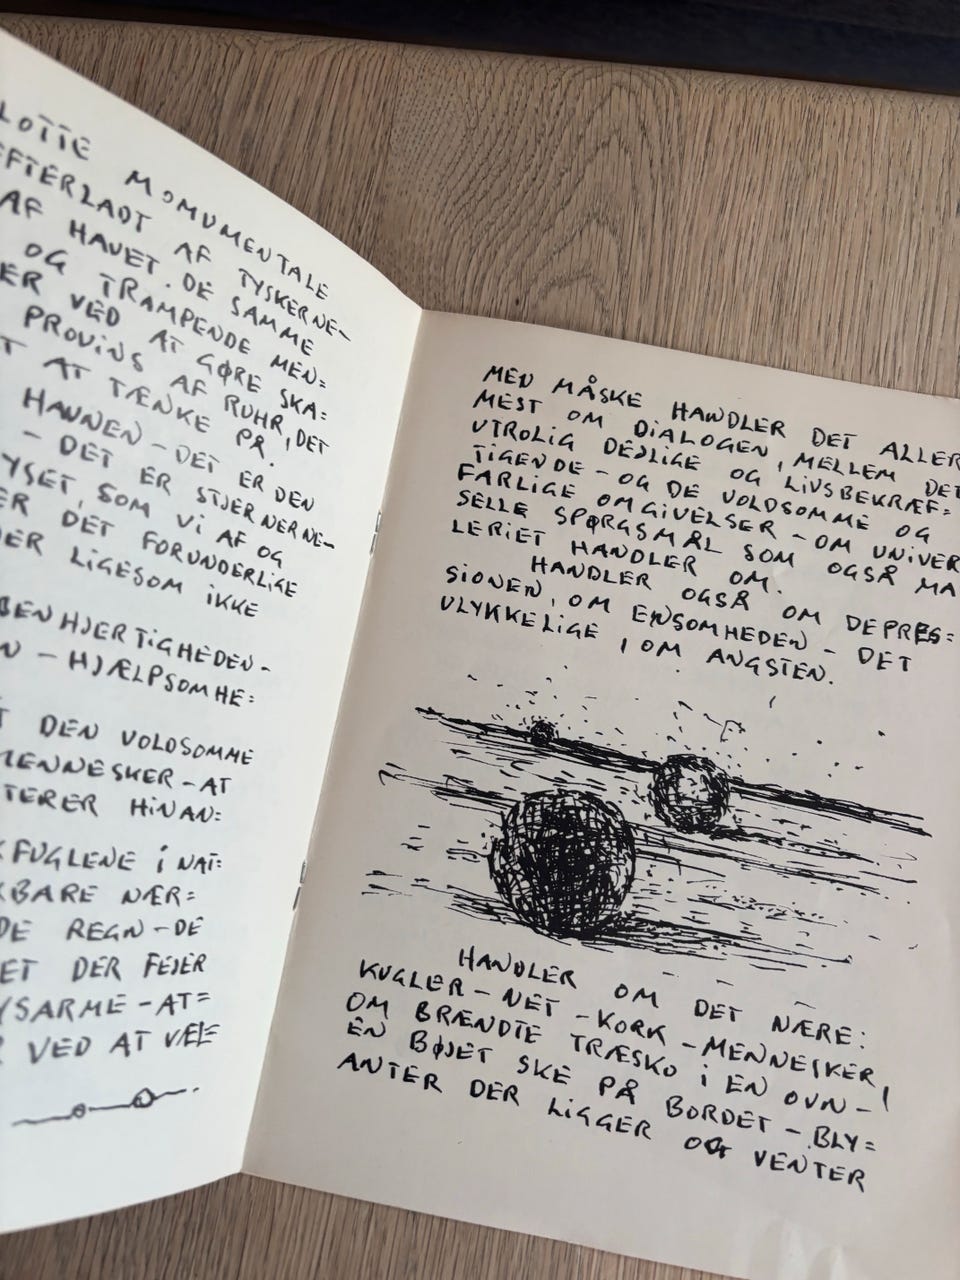 LOTTE MOMUMENTALE
EFTERLADT AF TYSKERNE-
AF HAVET. DE SAMME
OG TRAMPENDE MEN=
ER VED AT GØRE SKA=
PROVINS AF RUHR, DET
T AT TÆNKE PÅ.
HAVNEN - DET ER DEN
- DET ER STJERNERNE-
YSET, SOM VI AF OG
ER DET FORUNDERLIGE
DER LIGESOM IKKE
BENHJERTIGHEDEN-
N - HJÆLPSOMHE=
T DEN VOLDSOMME
MENNESKER - AT
TERER HINAN=
K FUGLENE i NAT=
KBARE NÆR=
DE REGN - DE
ET DER FEJER
YSARME - AT=
R VED AT VÆL=
MEN MÅSKE HANDLER DET ALLER
MEST OM DIALOGEN, MELLEM DET
UTROLIG DEJLIGE OG LIVSBEKRÆF=
TIGENDE - OG DE VOLDSOMME OG
FARLIGE OMGIVELSER - OM UNIVER
SELLE SPØRGSMÅL SOM OGSÅ MA
LERIET HANDLER OM.
HANDLER OGSÅ OM DEPRES=
SIONEN, OM ENSOMHEDEN - DET
ULYKKELIGE, OM ANGSTEN.
HANDLER OM DET NÆRE:
KUGLER - NET - KORK - MENNESKER,
OM BRÆNDTE TRÆSKO i EN OVN - 
EN BØJET SKE PÅ BORDET - BLY=
ANTER DER LIGGER OG VENTER